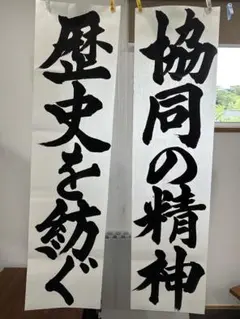 協同の精神
歴史を紡ぐ